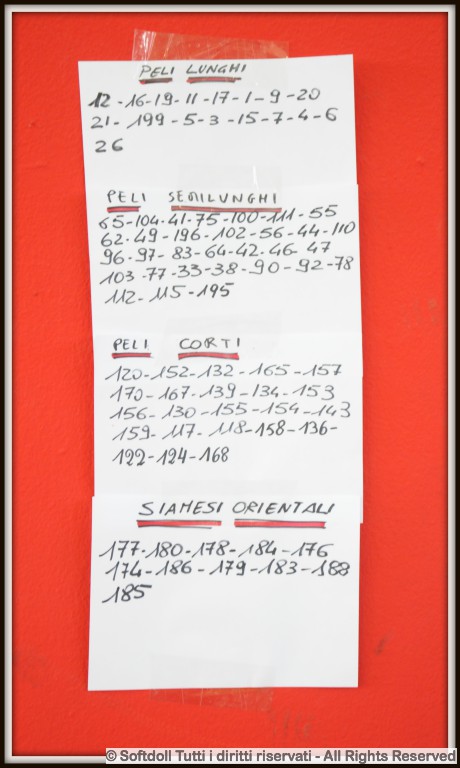 PELI LUNGHI
12-16-19-11-17-1-9-20
21-199-5-3-15-7-4-6
26
PELI SEMILUNGHI
65-104-41-75-100-111-55
62-49-196-102-56-44-110
96-97-83-64-42-46-47
103-77-33-38-90-92-78
112-115-195
PELI CORTI
120-152-132-165-157
170-167-139-134-153
156-130-155-154-143
159-117-118-158-136-
122-124-168
SIAMESI ORIENTALI
177-180-178-184-176
174-186-179-183-188
185
© Softdoll Tutti i diritti riservati - All Rights Reserved